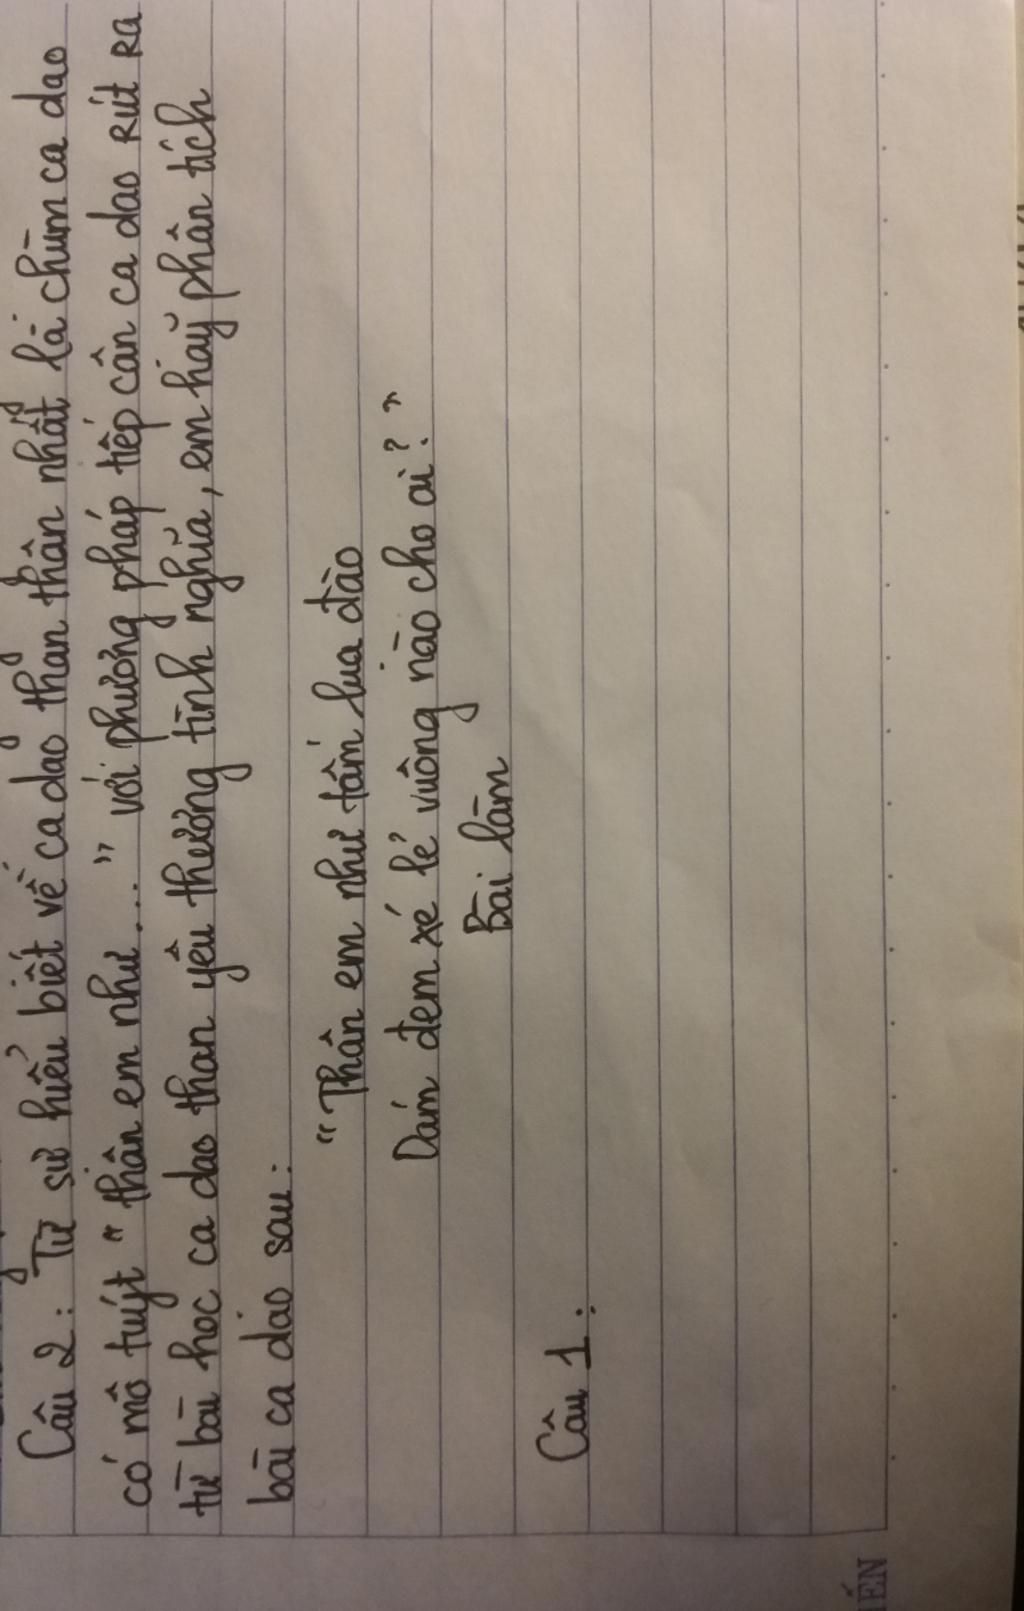 Câu 2: Từ sự hiểu biết về ca dao than thân nhất là chùm ca dao
có mô tuýt "thân em như...." với phương pháp tiếp cân ca dao rút ra
từ bài học ca dao than yêu thương tình nghĩa, em hãy phân tích
bài ca dao sau:
"Thân em như tấm lụa đào
Dám đem xé lẻ vuông nào cho ai?"
Bài làm
Câu 1:
IẾN